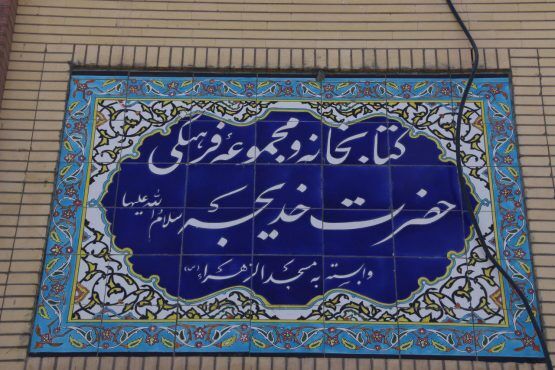 کتابخانه و مجموعه فرهنگی
حضرت خدیجه سلام الله علیها
وابسته به مسجد الزهرا (س)